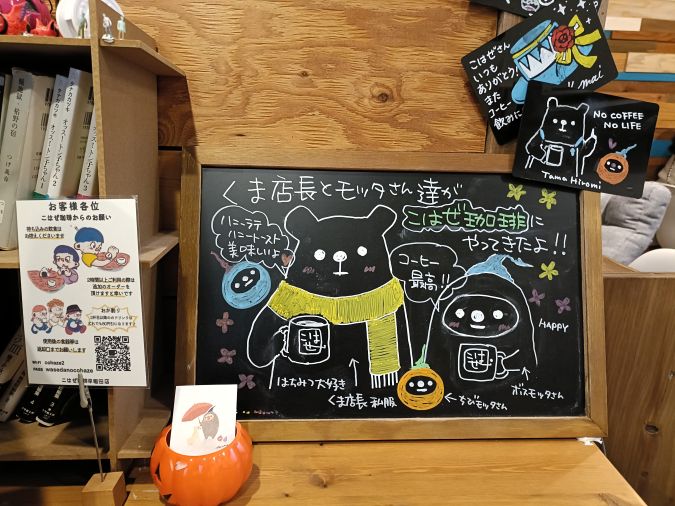 くま店長とモッタさん達が
こはぜ珈琲に
やってきたよ!!
ハニーラテ
ハニートースト
美味しいよ
コーヒー
最高!!
HAPPY
こはぜ
こはぜ
はちみつ大好き
くま店長 私服
←ちびモッタさん
ボスモッタさん
こはぜさん
いつも
ありがとう!
また
コーヒー
飲みに
mai
NO COFFEE
NO LIFE
Tama Hiromi
お客様各位
こはぜ珈琲からのお願い
持ち込みの飲食は
お控えくださいませ
2時間以上ご利用の際は
追加のオーダーを
頂けますと幸いです
おかわり
使用後の食器等は
返却口までお願いします
Wi-Fi cohaze2
PASS wasedanocohaze
こはぜ珈琲早稲田店
つげ義春
オッス!トン子ちゃん 2
タナカカツキ
オッス!トン子ちゃん 1